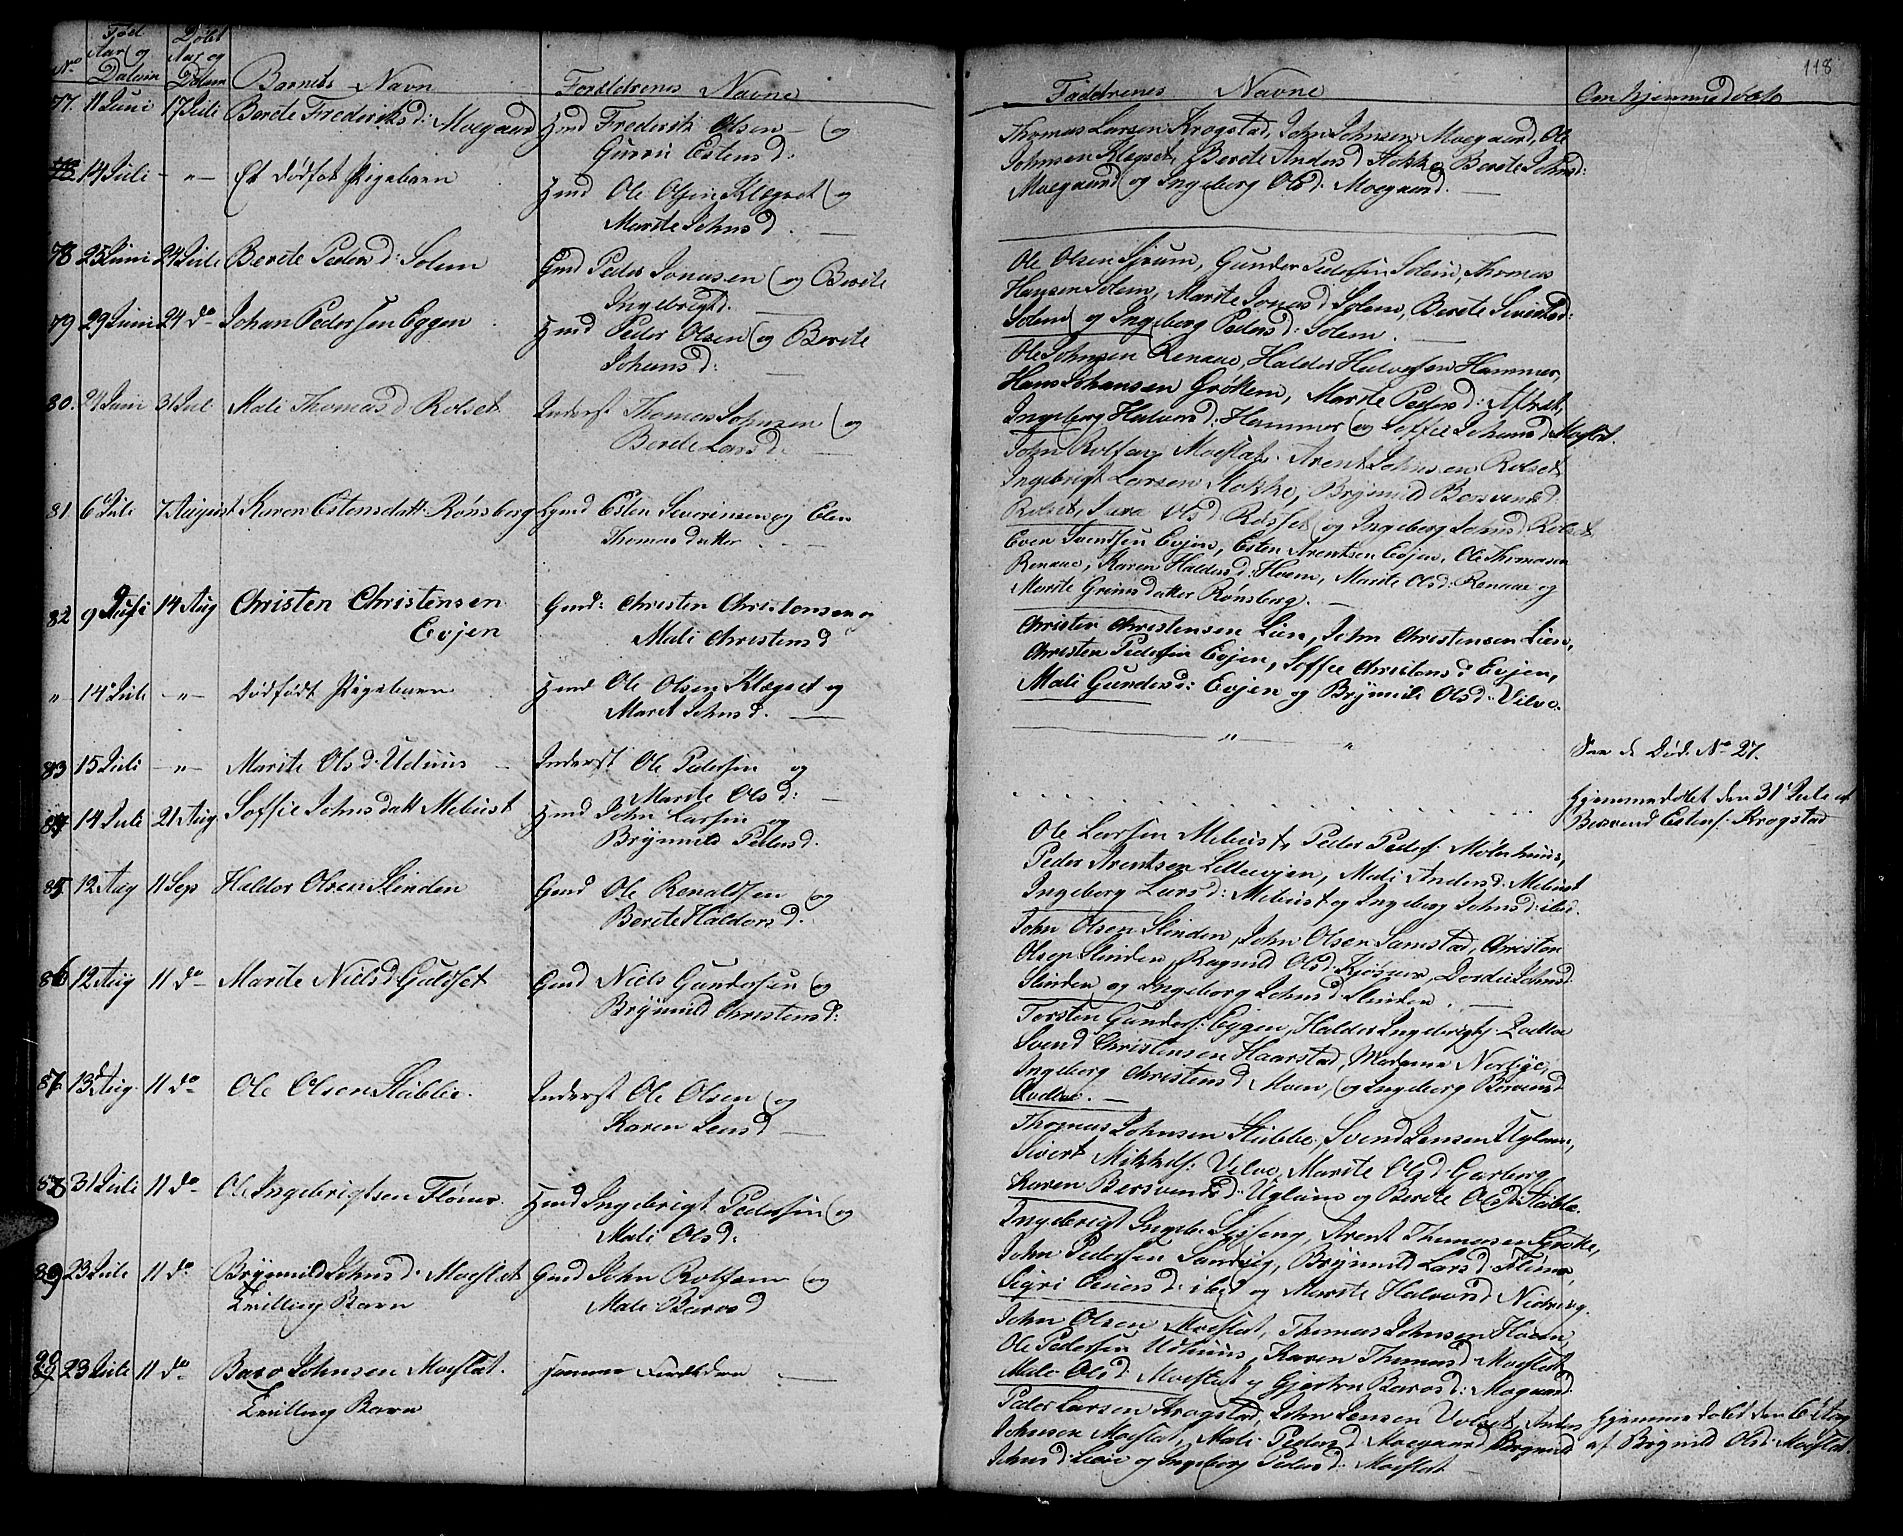 118
No
Fød Aar og Datum
Døbt Aar og Datum
Barnets Navn
Forældrenes Navne
Faddernes Navne
Om hjemmedøbt
77. 11 Juni 17 Juli Berete Frederiksd: Moegaard
Hmd Frederik Olsen og
Gurru Estensd:
Thomas Larsen Krogstad, John Johnsen Moegaard, Ole
Johnsen Klegset, Berete Andersd Stokke, Berete Johnsd:
Moegaard og Ingeborg Olsd: Moegaard.
14 Juli - " - Et dødfødt Pigebarn
Hmd Ole Olsen Klegset og
Marite Johnsd.
78 25 Juni 24 Juli Berete Pedersd: Solem
Gmd Peder Jonasen og Berete
Ingebrigtd.
Ole Olsen Sjrum, Gunder Pedersen Solem, Thomas
Hansen Solem, Marite Jonasd: Solem, Berete Sivertsd:
Solem og Ingeborg Pedersd: Solem.
79 29 Juni 24 do Johan Pedersen Eggen
Hmd Peder Olsen og Berete
Johansd:
Ole Johnsen Renaae, Haldor Halvorsen Hammer,
Hans Johansen Grøttem, Marite Pedersd: Aftret,
Ingeborg Halvorsd: Hammer og Soffie Johansd Moeslet.
80. 24 Juni 31 Jul Mali Thomasd Rolset
Inderst Thomas Johnsen og
Berete Larsd:
John Rolfsen Moeslet, Arent Johnsen Rolset
Ingebrigt Larsen Stokke, Brynnild Barsvends
Rolset, Sara Olsd Rosset og Ingeborg Johnsd Rolset
81 6 Juli 7 August Karen Estensdatt. Rønsberg
Gmd Esten Severinsen og Elen
Thomasdatter
Even Svendsen Evjen, Esten Arentsen Evjen, Ole Thomasen
Renaae, Karen Haldorsd: Hoem, Marite Olsd: Renaae og
Marite Grimsdatter Rønsberg.
82 9 Juli 14 Aug Christen Christensen
Evjen
Gmd: Christen Christensen og
Mali Christensd
Christen Christensen Lien, John Christensen Lien,
Christen Pedersen Evjen, Soffie Christensd Evjen,
Mali Gundersd: Evjen og Brynnild Olsd: Vilve.
" 14 Juli - " - Dødfødt Pigebarn
Hmd Ole Olsen Klegset og
Marit Johnsd.
" "
83 15 Juli - " - Marite Olsd: Uduus
Inderst Ole Pedersen og
Marite Olsd:
See de Død. No 27.
84 14 Juli 21 Aug Soffie Johnsdatt Mebust
Hmd John Larsen og
Brynnild Pedersd.
Ole Larsen Mebust, Peder Peders. Mølnhuus,
Peder Arentsen Lilleevjen, Mali Andersd: Mebust
Ingeborg Larsd: Mebust og Ingeborg Johnsd: ibid.
Hjemmedøbt den 31 Juli af
Bersvend Estens. Krogstad
85 12 Aug 11 Sep Haldor Olsen Slinden
Gmd Ole Ronaldsen og
Berete Haldorsd.
John Olsen Slinden, John Olsen Samstad, Christen
Olsen Slinden, Ragnild Olsd: Kjøsnæs, Dordie Johnsd
Slinden og Ingeborg Johnsd: Slinden.
86 12 Aug 11 do Marite Nielsd Guldset
Gmd Niels Gundersen og
Brynnild Christensd:
Torsten Gunders. Eggen, Haldor Ingebrigts.
Svend Christensen Haarstad, Madame
Ingeborg Christensd Moen, og Ingeborg
87. 13 Aug. 11 do Ole Olsen Stubbe.
Inderst Ole Olsen og
Karen Jensd
Thomas Johnsen Stubbe, Svend Jensen Uglem,
Sivert Mikkels. Vilve, Marite Olsd. Garberg,
Karen Bersvendsd: Uglem og Berete Olsd: Stubbe.
88 31 Juli 11 do Ole Ingebrigtsen Flønes.
Hmd Ingebrigt Pedersen og
Mali Olsd:
Ingebrigt Ingebr. Arent Thomasen
John Pedersen Sandvig, Brynnild Larsd: Flønes,
Sigri d: ibid og Marite Halvorsd
89 23 Juli 11 do Brynnild Johnsd: Moeslet
Tvilling Barn
Gmd John Rolfsen og
Mali Barosd
John Olsen Moeslet, Thomas Johnsen Hoem
Ole Pedersen Uthuus, Karen Thomasd: Moeslet,
Mali Olsd: Moeslet og Gjertru Barosd: Mogaard.
90 23 Juli 11 do Baro Johnsen Moeslet.
Tvilling Barn
samme Forældre
Peder Larsen Krogstad, John Jensen Volset, Anders
Johnsen Moeslet, Mali Pedersd: Moegaard, Brynnild
Johnsd: Lien og Ingeborg Pedersd: Moeslet
Hjemmedøbt den 6 Aug
af Brynild Olsd: Moeslet.